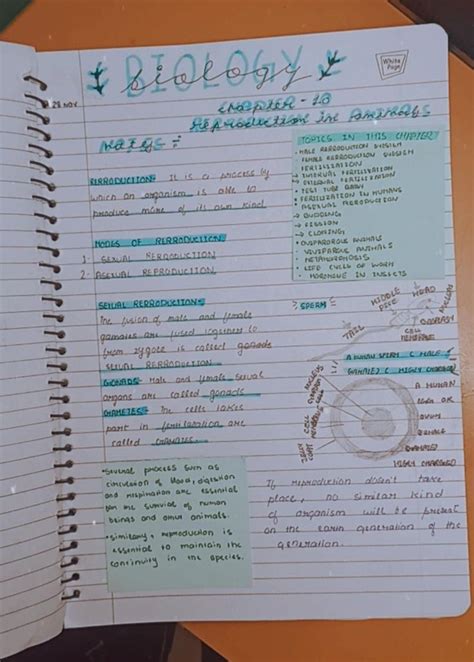 BIOLOGY
biology
White Page
28 Nov
Chapter - 10
Reproduction in animals
Notes :-
TOPICS IN THIS CHAPTER
• MALE REPRODUCTIVE SYSTEM
• FEMALE REPRODUCTIVE SYSTEM
FERTILIZATION
→ INTERNAL FERTILIZATION
→ EXTERNAL FERTILIZATION
• TEST TUBE BABY
• FERTILIZATION IN HUMANS
• ASEXUAL REPRODUCTION
→ BUDDING
→ FISSION
→ CLONING
• OVIPAROUS ANIMALS
VIVIPAROUS ANIMALS
• METAMORPHOSIS
• LIFE CYCLE OF
• HORMONE IN INSECTS
REPRODUCTION: It is a process by
which an organism is able to
produce more of its own kind
MODES OF REPRODUCTION
1- SEXUAL REPRODUCTION
2- ASEXUAL REPRODUCTION
SEXUAL REPRODUCTION:
The fusion of male and female
gametes are fused together to
form zygote is called gonads
SEXUAL REPRODUCTION
GONADS- Male and female sexual
organs are called gonads
GAMETES- The cells takes
part in fertilization are
called GAMETES.
→ SPERM:
TAIL
MIDDLE
PIECE
HEAD
NUCLEUS
CELL
MEMBRANE
A HUMAN SPERM ( MALE
GAMETE)
NUCLEUS
CELL MEMBRANE
JELLY
COAT
A HUMAN
OVUM
FEMALE
GAMETE
HIGHLY
• Several process such as
circulation of blood, digestion
and respiration are essential
for the survival of human
beings and other animals.
• Similarly, reproduction is
essential to maintain the
continuity in the species.
If reproduction doesn't take
place, no similar kind
of organism will be present
on the earth generation of the
generation.